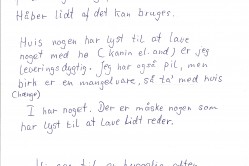 Håber lidt af det kan bruges.
Hvis nogen har lyst til at lave
noget med hø (kanin el. and) er jeg
leveringsdygtig. Jeg har også pil, men
birk er en mangelvare, så ta' med hvis
I har noget. Der er måske nogen som
har lyst til at lave lidt reder.